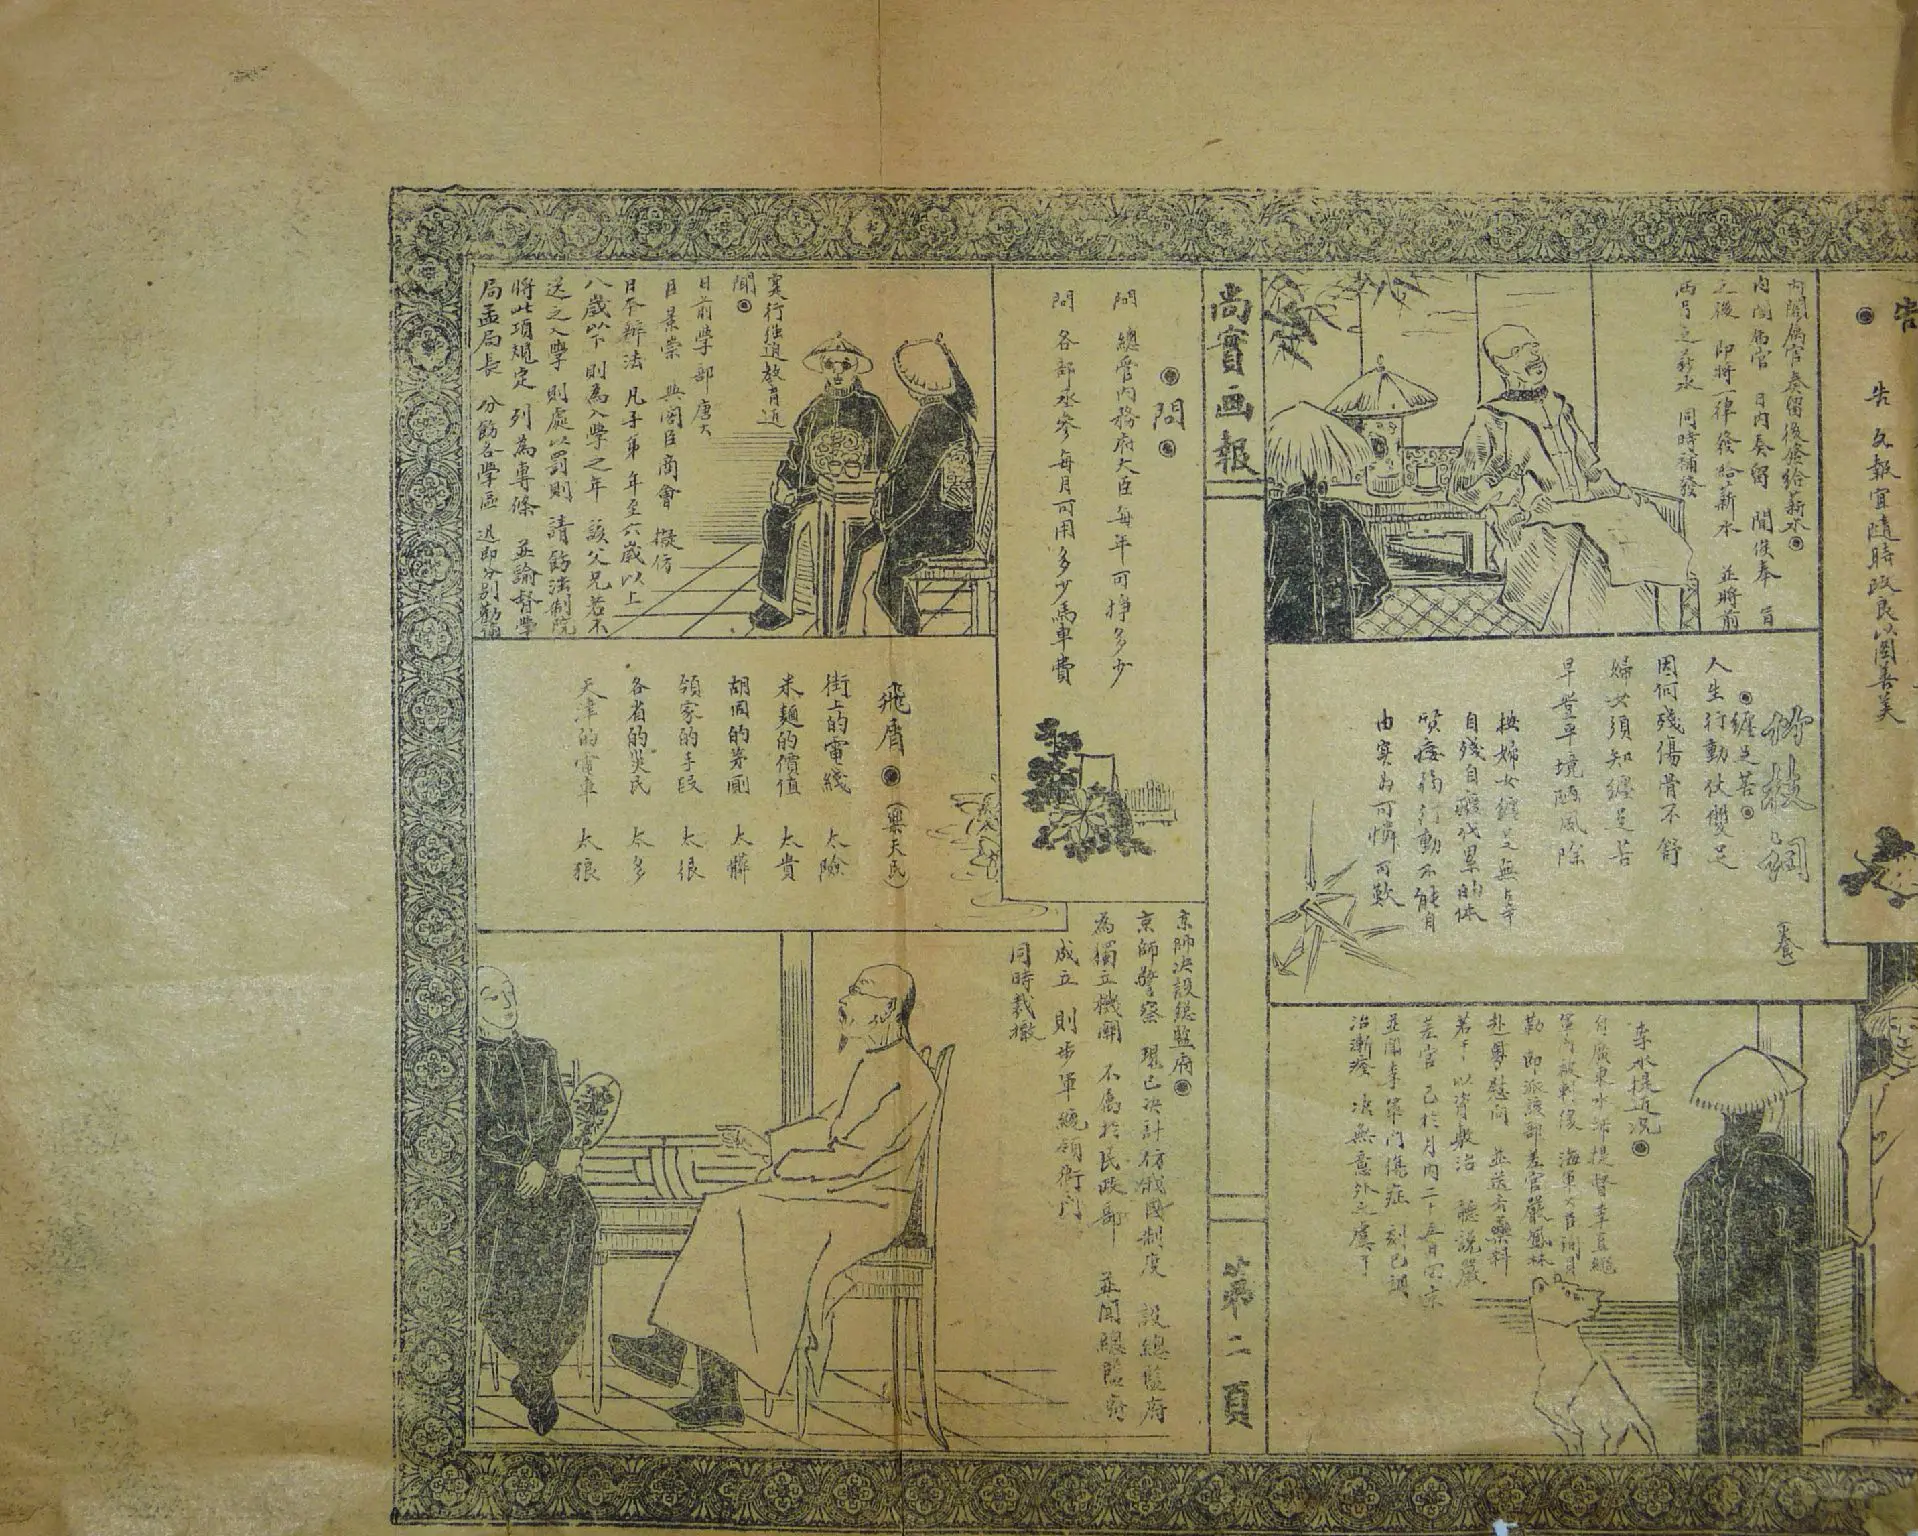 告
告 文報宜隨時改良以圖善美
內閣屬官奏留後發給薪水
內閣屬官 日內奏留 聞俟奉 旨
之後 即將一律發給薪水 並將前
兩月之薪水 同時補發
纏足苦
人生行動仗雙足
因何殘傷骨不舒
婦女須知纏足苦
早登平境陋風除
按婦女纏足無上等
自殘自廢伐累的体
質矮弱行動不能自
由實為可憐可歎
李水提近况
自廣東水師提督李直繩
軍門被刺後 海軍大臣洵貝
勒 即派該部差官嚴鳳林
赴粵慰問 並送去藥料
若干 以資敷治 聽說嚴
差官 已於月內二十五日回京
並聞李軍門傷症 刻已調
治漸痊 决無意外之虞了
尚實画報
第二頁
問
問 總管內務府大臣每年可掙多少
問 各部丞參每月可用多少馬車費
京師决設總監府
京師警察 現已决計仿俄國制度 設總監府
為獨立機關 不屬於民政部 並聞總監府
成立 則步軍統領衙門
同時裁撤
實行强迫教育近
聞
日前學部唐大
臣景崇 與閣臣商會 擬仿
日本辦法 凡子弟年至六歲以上
八歲以下 則為入學之年 該父兄若不
送之入學 則處以罰則 請飭法制院
將此項規定 列為專條 並諭督學
局孟局長 分飭各學區 迅即分別勸諭
飛屑 (樂天民)
街上的電綫 太險
米麵的價值 太貴
胡同的茅厠 太髒
領家的手段 太很
各省的災民 太多
天津的電車 太狼